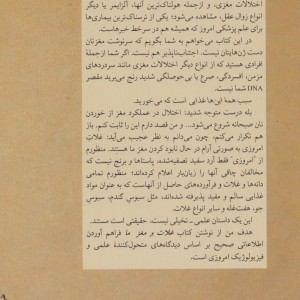 اختلالات مغزی، و ازجمله هولناک‌ترین آنها، آلزایمر یا دیگر
انواع زوال عقل، مشاهده می‌شود؛ یکی از ترسناک‌ترین بیماری‌ها
برای علم پزشکی امروز که همیشه هم در سرخط خبرهاست.
در این کتاب می‌خواهم به شما بگویم که سرنوشت مغزتان
دست ژن‌هایتان نیست. اجتناب‌ناپذیر هم نیست. اگر شما ازجملۀ
افرادی هستید که از انواع دیگر اختلالات مغزی مانند سردردهای
مزمن، افسردگی، صرع یا بی‌حوصلگی شدید رنج می‌برید مقصر
DNA شما نیست.
سبب همۀ اینها غذایی است که می‌خورید.
بله درست متوجه شدید: اختلال در عملکرد مغز از خوردن
نان صبحانه شروع می‌شود... و من قصد دارم این را ثابت کنم. باز
هم تکرار می‌کنم، چون می‌دانم به نظر عجیب می‌آید: غلات
امروزی به صورتی آرام در حال نابود کردن مغز ما هستند. منظورم
از «امروزی» فقط آرد سفید تصفیه‌شده، پاستاها و برنج نیست که
مخالفان چاقی آنها را زیان‌بار اعلام کرده‌اند؛ منظورم تمامی
دانه‌ها و غلات و فرآورده‌های حاصل از آنهاست که به عنوان مواد
غذایی سالم و مفید پذیرفته شده‌اند، مثل سبوس گندم، سبوس
جو، هفت‌غله و سایر انواع غلات.
این یک داستان علمی ـ تخیلی نیست، حقیقتی است مستند.
هدف من از نوشتن کتاب غلات و مغز ما فراهم آوردن
اطلاعاتی صحیح بر اساس دیدگاه‌های متحول‌کنندۀ علمی و
فیزیولوژیک امروزی است.